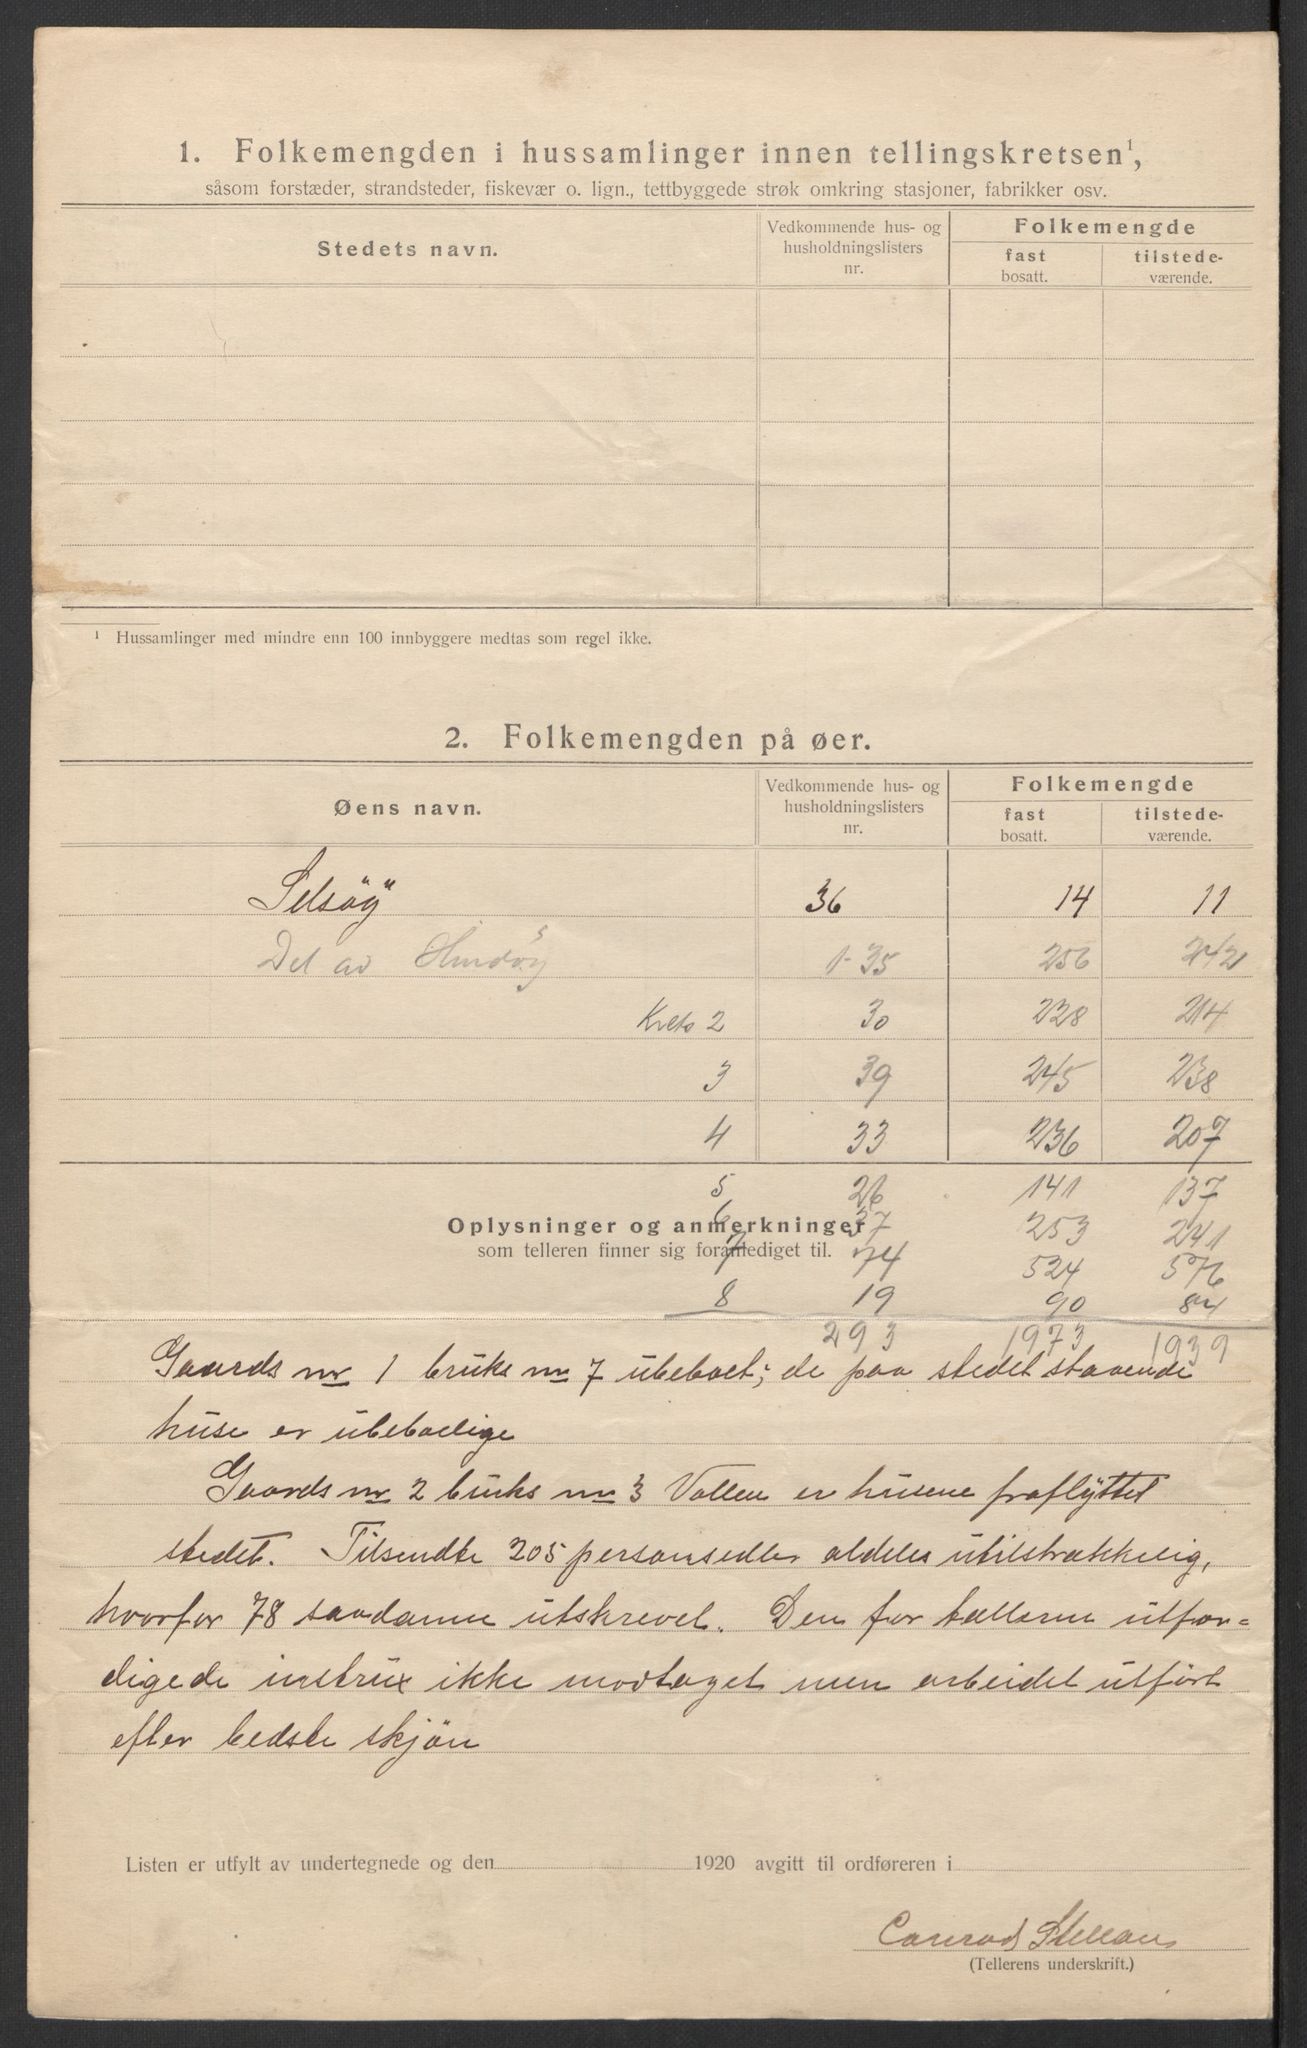 1. Folkemengden i hussamlinger innen tellingskretsen¹,
såsom forstæder, strandsteder, fiskevær o. lign., tettbyggede strøk omkring stasjoner, fabrikker osv.
Stedets navn. Vedkommende hus- og husholdningslisters nr. Folkemengde
fast bosatt. tilstede-værende.
¹ Hussamlinger med mindre enn 100 innbyggere medtas som regel ikke.
2. Folkemengden på øer.
Øens navn. Vedkommende hus- og husholdningslisters nr. Folkemengde
fast bosatt. tilstede-værende.
Selsöy 36 14 11
Del av Hindöy 1-35 256 242
Krets 2 30 228 214
3 39 245 238
4 33 236 207
5 26 141 137
6 37 253 241
7 74 524 576
8 19 90 84
293 1973 1939
Oplysninger og anmerkninger
som telleren finner sig foranlediget til.
Gaards nr 1 bruks nr 7 ubeboet; de paa stedet staaende
huse er ubeboelige
Gaards nr 2 bruks nr 3 Vollen er husene fraflyttet
stedet. Tilsendte 205 personsedler aldeles utilstrækkelig,
hvorfor 78 saadanne utskrevet. Den for tællerne utfær=
digede instrux ikke modtaget men arbeidet utført
efter bedste skjön
Listen er utfylt av undertegnede og den 1920 avgitt til ordføreren i
Conrad
(Tellerens underskrift.)